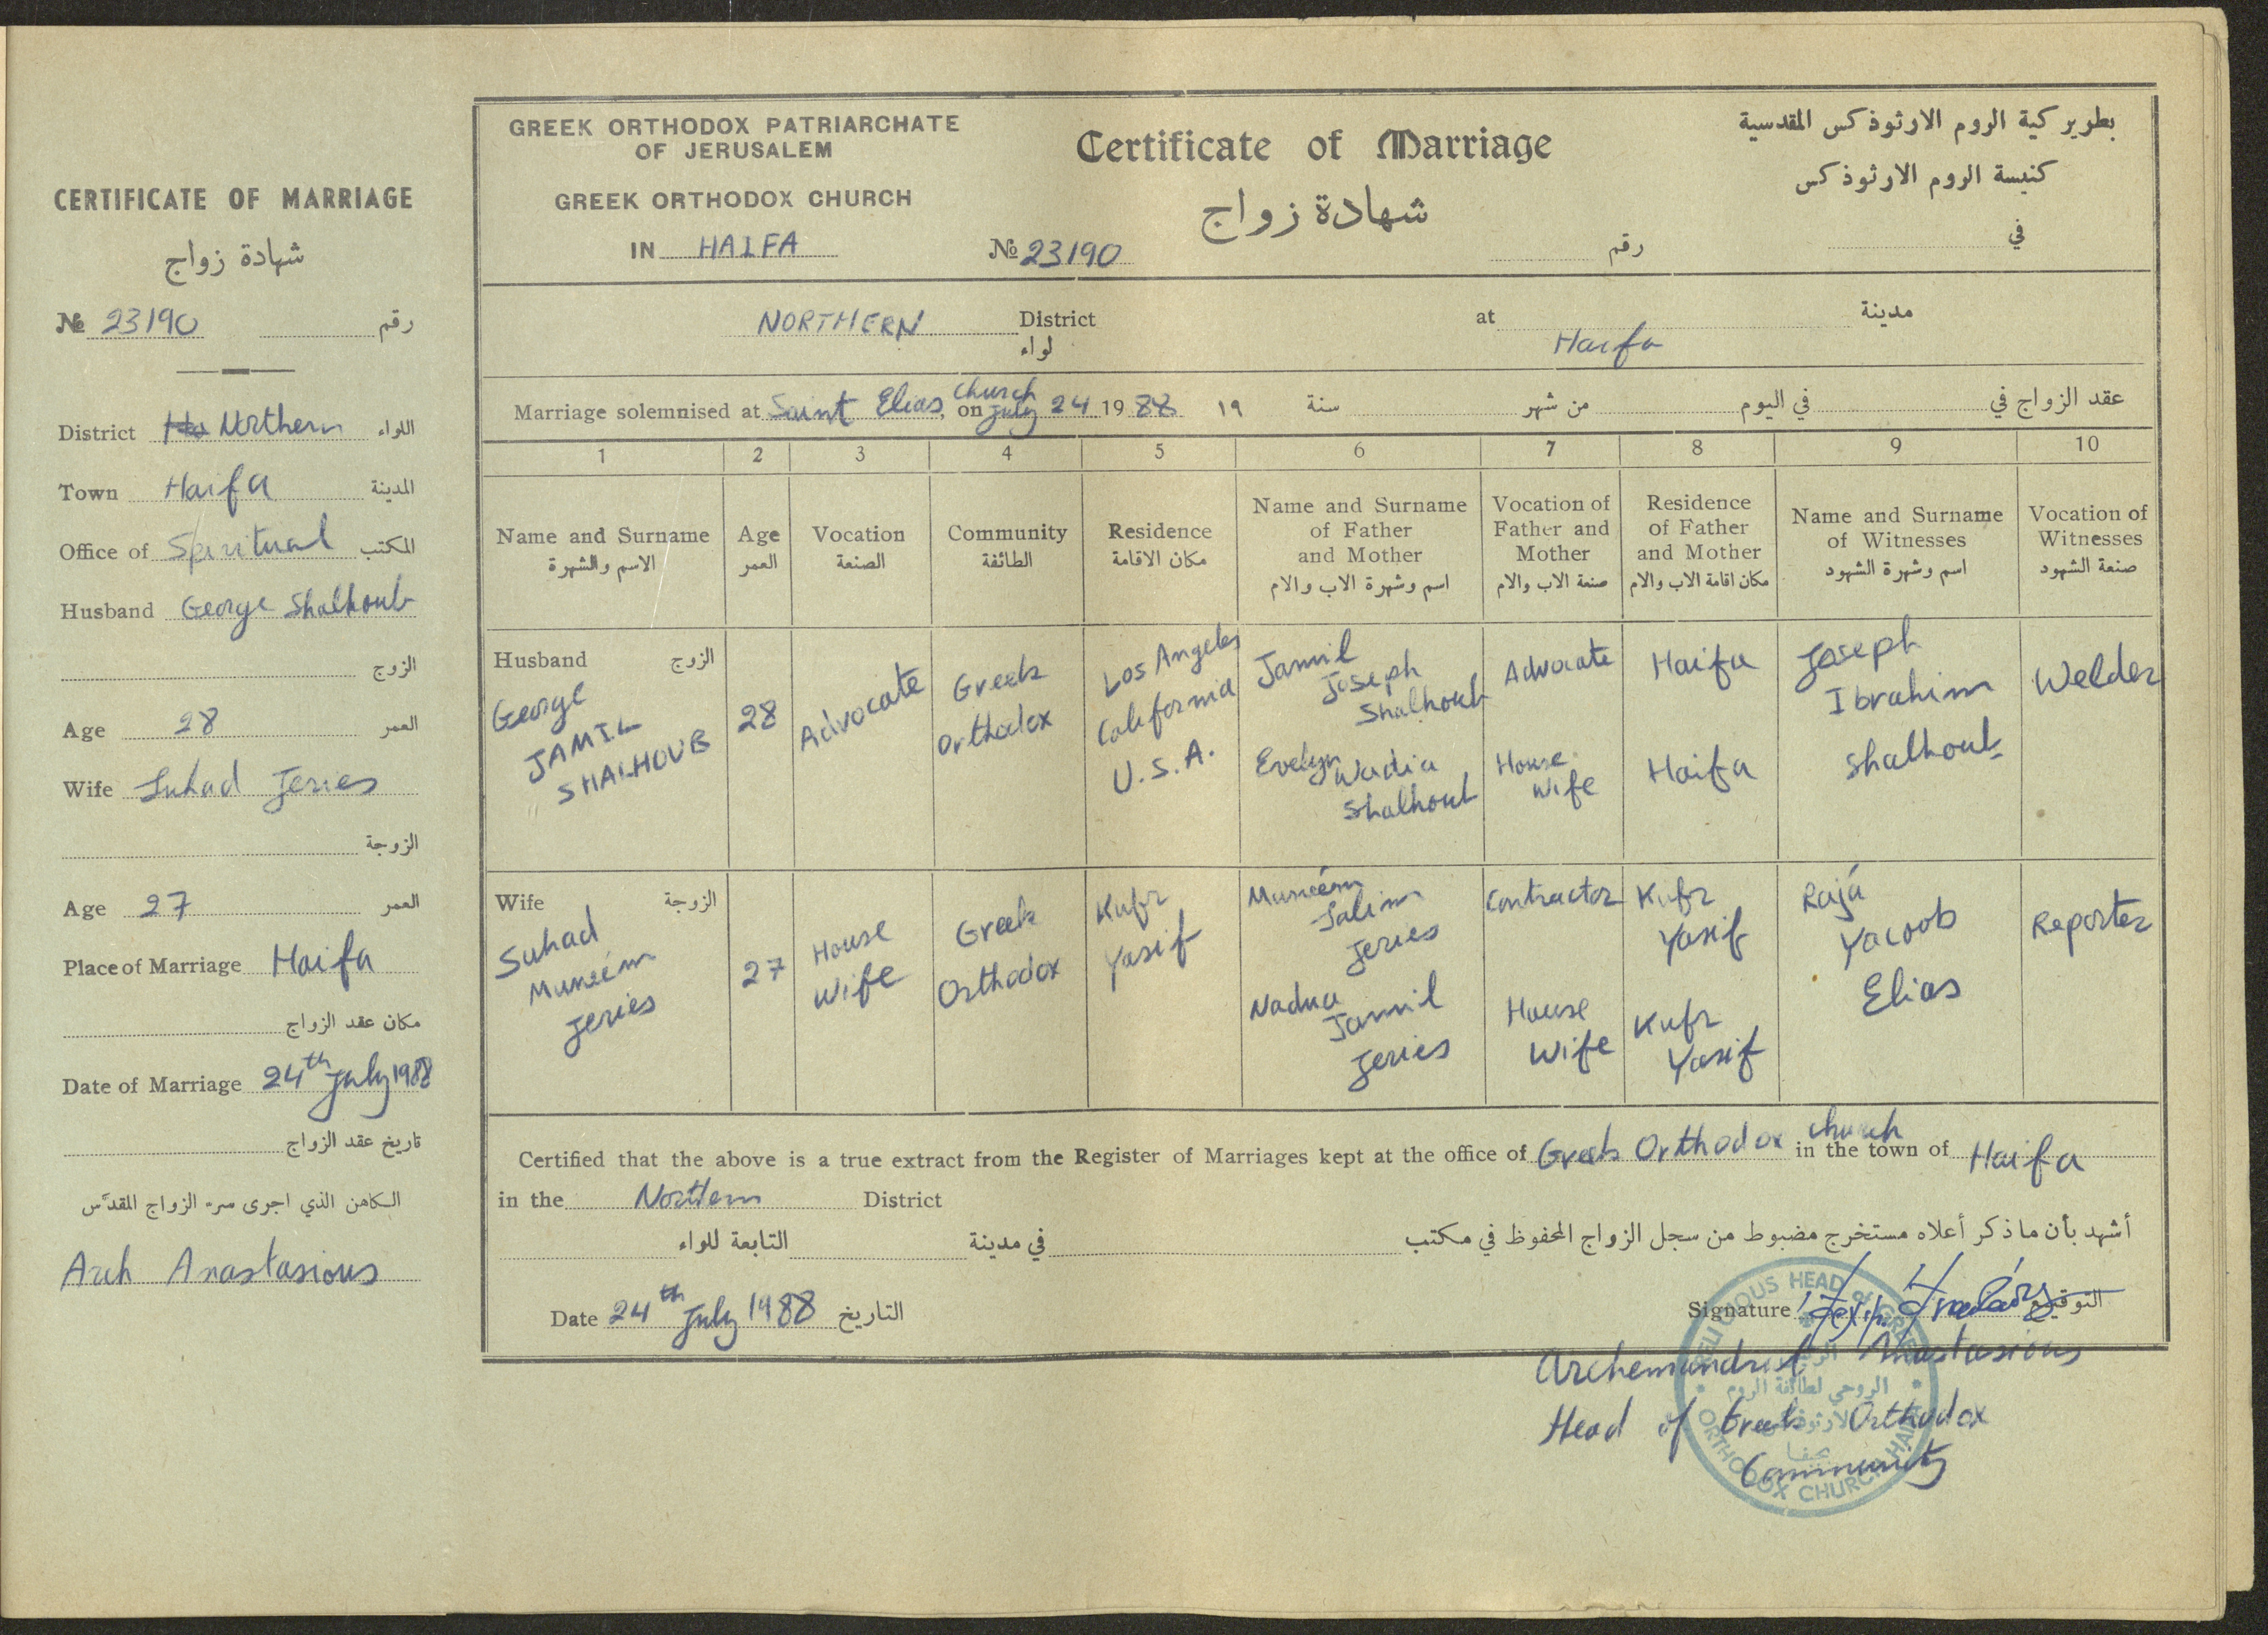 CERTIFICATE OF MARRIAGE
شهادة زواج
№ 23190 رقم
District Northern اللواء
Town Haifa المدينة
Office of Spiritual المكتب
Husband George Shalhoub
الزوج
Age 28 العمر
Wife Suhad Jeries
الزوجة
Age 27 العمر
Place of Marriage Haifa
مكان عقد الزواج
Date of Marriage 24th July 1988
تاريخ عقد الزواج
الكاهن الذي اجرى سر الزواج المقدس
Arch Anastasious
GREEK ORTHODOX PATRIARCHATE
OF JERUSALEM
GREEK ORTHODOX CHURCH
IN HAIFA
Certificate of Marriage
شهادة زواج
№ 23190 رقم
بطريركية الروم الارثوذكس المقدسية
كنيسة الروم الارثوذكس
في
NORTHERN District at مدينة
لواء Haifa
Marriage solemnised at Saint Elias church, on July 24 1988 ١٩ سنة من شهر في اليوم عقد الزواج في
1 2 3 4 5 6 7 8 9 10
Name and Surname
الاسم والشهرة
Age
العمر
Vocation
الصنعة
Community
الطائفة
Residence
مكان الاقامة
Name and Surname
of Father
and Mother
اسم وشهرة الاب والام
Vocation of
Father and
Mother
صنعة الاب والام
Residence
of Father
and Mother
مكان اقامة الاب والام
Name and Surname
of Witnesses
اسم وشهرة الشهود
Vocation of
Witnesses
صنعة الشهود
Husband الزوج
George
JAMIL
SHALHOUB
28
Advocate
Greek
Orthodox
Los Angeles
California
U.S.A.
Jamil
Joseph
Shalhoub
Evelyn Wadia
Shalhoub
Advocate
House
Wife
Haifa
Haifa
Joseph
Ibrahim
Shalhoub
Welder
Wife الزوجة
Suhad
Muneém
Jeries
27
House
Wife
Greek
Orthodox
Kufr
Yasif
Muneém
Salim
Jeries
Nadua
Jamil
Jeries
Contractor
House
Wife
Kufr
Yasif
Kufr
Yasif
Rajá
Yacoob
Elias
Reporter
Certified that the above is a true extract from the Register of Marriages kept at the office of Greek Orthodox church in the town of Haifa
in the Northern District
أشهد بأن ما ذكر أعلاه مستخرج مضبوط من سجل الزواج المحفوظ في مكتب في مدينة التابعة للواء
Date 24th July 1988 التاريخ
Signature التوقيع
Archemandrist Anastasious
Head of Greek Orthodox
Community
RELIGIOUS HEAD of GREEK
ORTHODOX CHURCH HAIFA
الروحي لطائفة الروم